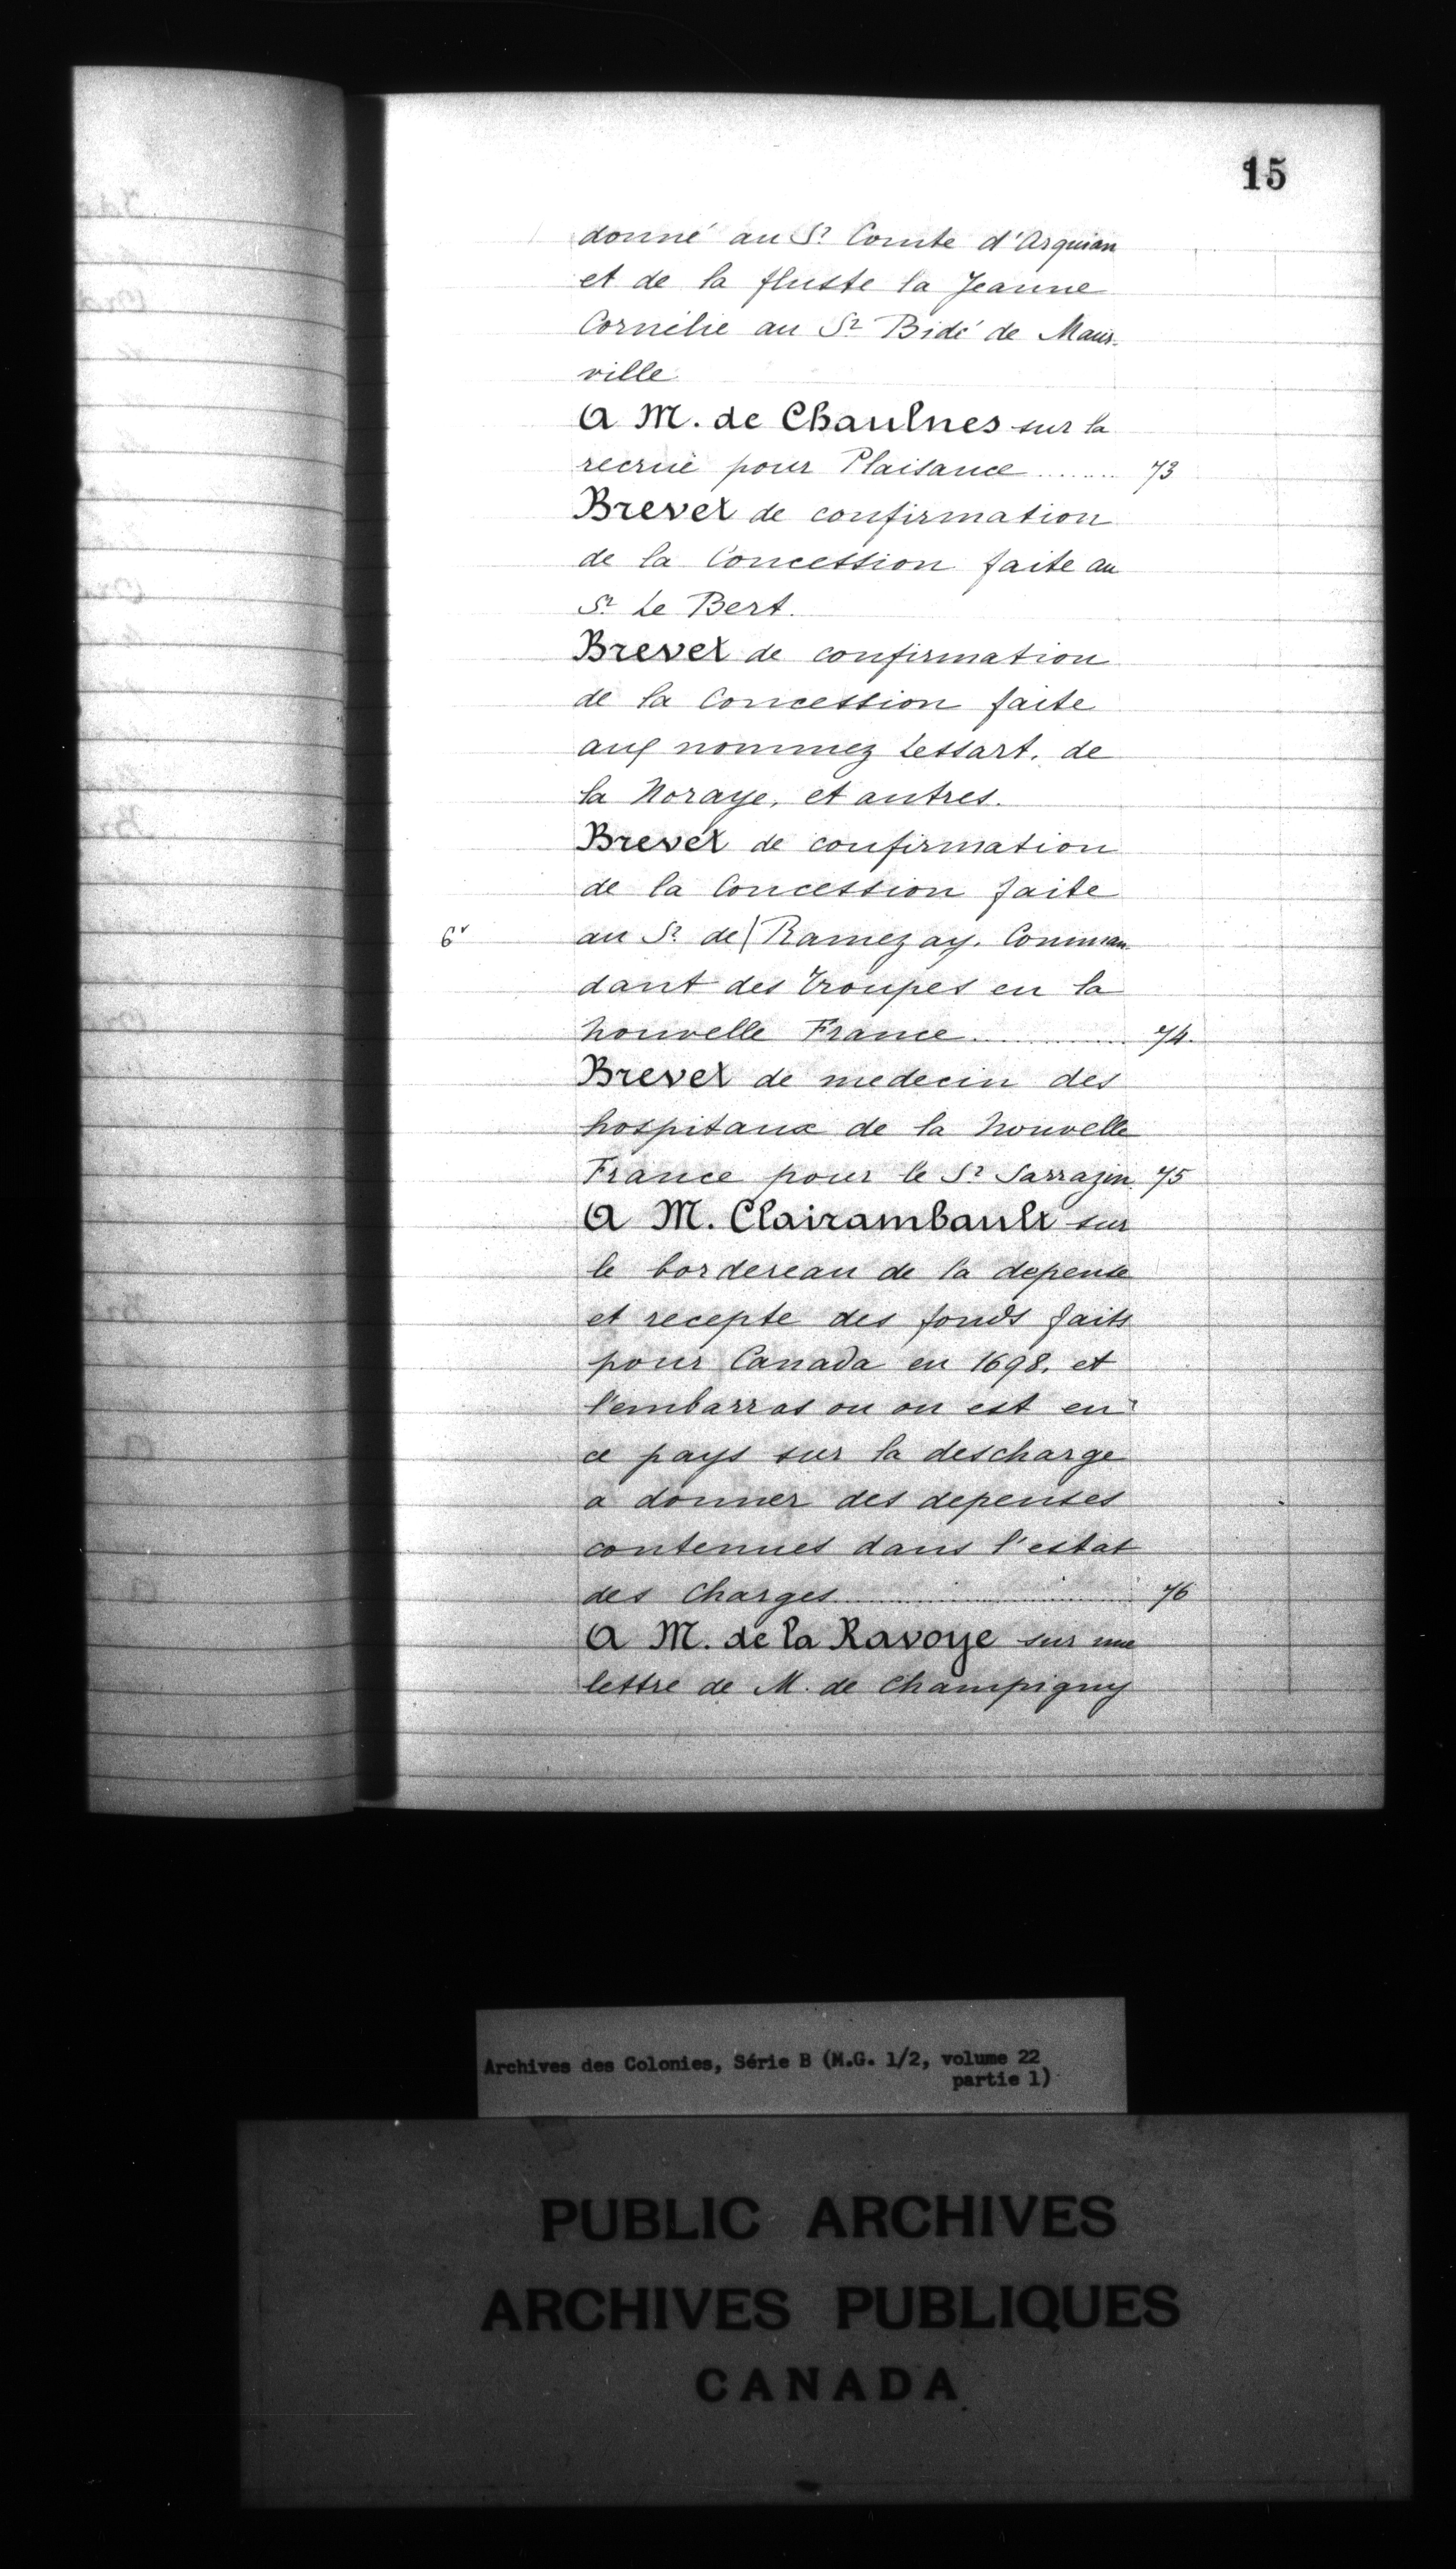 15
donné au Sr Comte d'Arquian
et de la fluste la Jeanne
Cornélie au Sr Bidé de Maur-
ville
A M. de Chaulnes sur la
recruë pour Plaisance ........ 73
Brevet de confirmation
de la Concession faite au
Sr Le Bert.
Brevet de confirmation
de la Concession faite
aux nommez Lessart, de
la Noraye, et autres.
Brevet de confirmation
de la Concession faite
6v au Sr de | Ramezay, Comman-
dant des troupes en la
Nouvelle France .............. 74.
Brevet de medecin des
hospitaux de la Nouvelle
France pour le Sr Sarrazin. 75
A M. Clairambault sur
le bordereau de la depense
et recepte des fonds faits
pour Canada en 1698, et
l'embarras ou on est en
ce pays sur la descharge
a donner des depenses
contenues dans l'estat
des Charges .............. 76
A M. de la Ravoye sur une
lettre de M. de Champigny
Archives des Colonies, Série B (M.G. 1/2, volume 22
partie 1)
PUBLIC ARCHIVES
ARCHIVES PUBLIQUES
CANADA